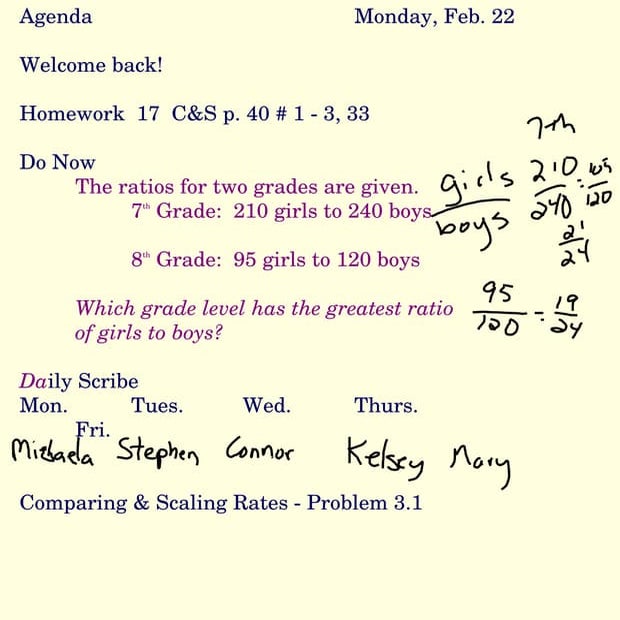 Agenda Monday, Feb. 22
Welcome back!
Homework 17 C&S p. 40 # 1 - 3, 33
7th
Do Now
The ratios for two grades are given.
7th Grade: 210 girls to 240 boys
girls
boys
210
240
=
105
120
21
24
8th Grade: 95 girls to 120 boys
Which grade level has the greatest ratio
of girls to boys?
95
120
=
19
24
Daily Scribe
Mon. Tues. Wed. Thurs.
Fri.
Michaela Stephen Connor Kelsey Mary
Comparing & Scaling Rates - Problem 3.1